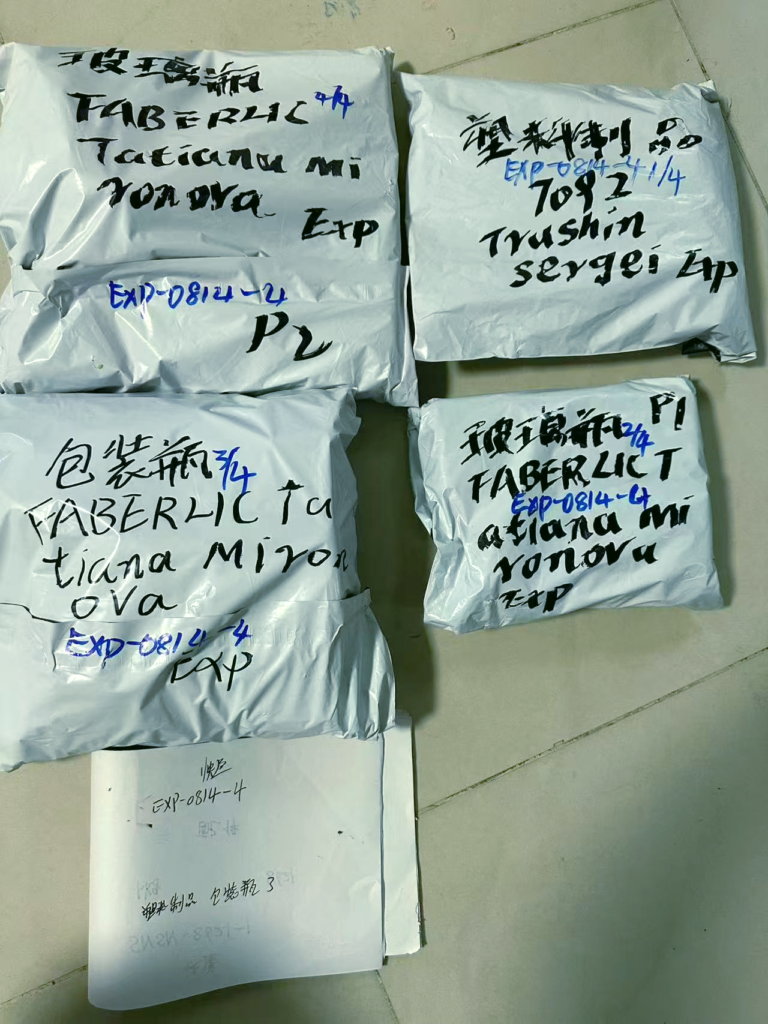 玻璃瓶
FABERLIC 4/4
Tatiana Mi
ronova
Exp
EXP-0814-4
P2
塑料制品
EXP-0814-4 1/4
7092
Trushin
sergei Exp
包装瓶 3/4
FABERLIC Ta
tiana Miron
ova
EXP-0814-4
Exp
玻璃瓶 2/4 P1
FABERLIC T
EXP-0814-4
atiana Mi
ronova
Exp
EXP-0814-4
塑料制品 包装瓶 3